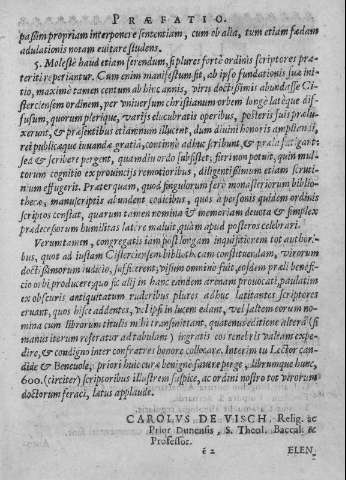 PRÆFATIO.
passim propriam interponere sententiam, cum ob alia, tum etiam fœdam
adulationis notam euitare studens.
5. Molestè haud etiam ferendum, si plures fortè ordinis scriptores præ-
teriti reperiantur. Cum enim manifestum sit, ab ipso fundationis suæ ini-
tio, maximè tamen centum ab hinc annis, viris doctissimis abundasse Ci-
sterciensem ordinem, per vniuersum christianum orbem longè latèque dif-
fusum, quorum plerique, varijs elucubratis operibus, posteris sui prælu-
xerunt, & præsentibus etiamnum illucent, dum diuini honoris ampliandi,
rei publicæque iuuandæ gratia, continuò adhuc scribunt, &
sed & scribere pergent, quamdiu ordo subsistet: fieri non potuit, quin mul-
torum cognitio ex prouincijs remotioribus, diligentissimum etiam scruti-
nium effugerit. Præterquam, quod singulorum ferè monasteriorum biblio-
thecæ, manuscriptis abundent codicibus, quos à personis quidem ordinis
scriptos constat, quarum tamen nomina & memoriam deuota & simplex
prædecessorum humilitas latere maluit, quàm apud posteros celebrari.
Verumtamen, congregatis iam post longam inquisitionem tot authori-
bus, quot ad iustam Cisterciensem bibliothecam constituendam, virorum
doctissimorum iudicio, sufficerent, visum omninò fuit, eosdem præli benefi-
cio orbi producere; quo sic alij in hanc eandem arenam prouocati, paulatim
ex obscuris antiquitatum ruderibus plures adhuc latitantes scriptores
eruant, quos hisce addentes, vel ipsi in lucem edant, vel saltem eorum no-
mina cum librorum titulis mihi transmittant, quatenus editione alterâ (si
manus iterum referatur ad tabulam) ingratis eos tenebris valeam expe-
dire, & condigno inter confratres honore collocare. Interim tu Lector can-
dide & Beneuole, priori huic curæ benignè fauere perge, librumque hunc,
600. (circiter) scriptoribus illustrem suspice, ac ordini nostro tot virorum
doctorum feraci, lætus applaude.
CAROLVS DE VISCH, Relig. ac
Prior Dunensis, S. Theol. Baccal. &
Professor.
é 2 ELEN-